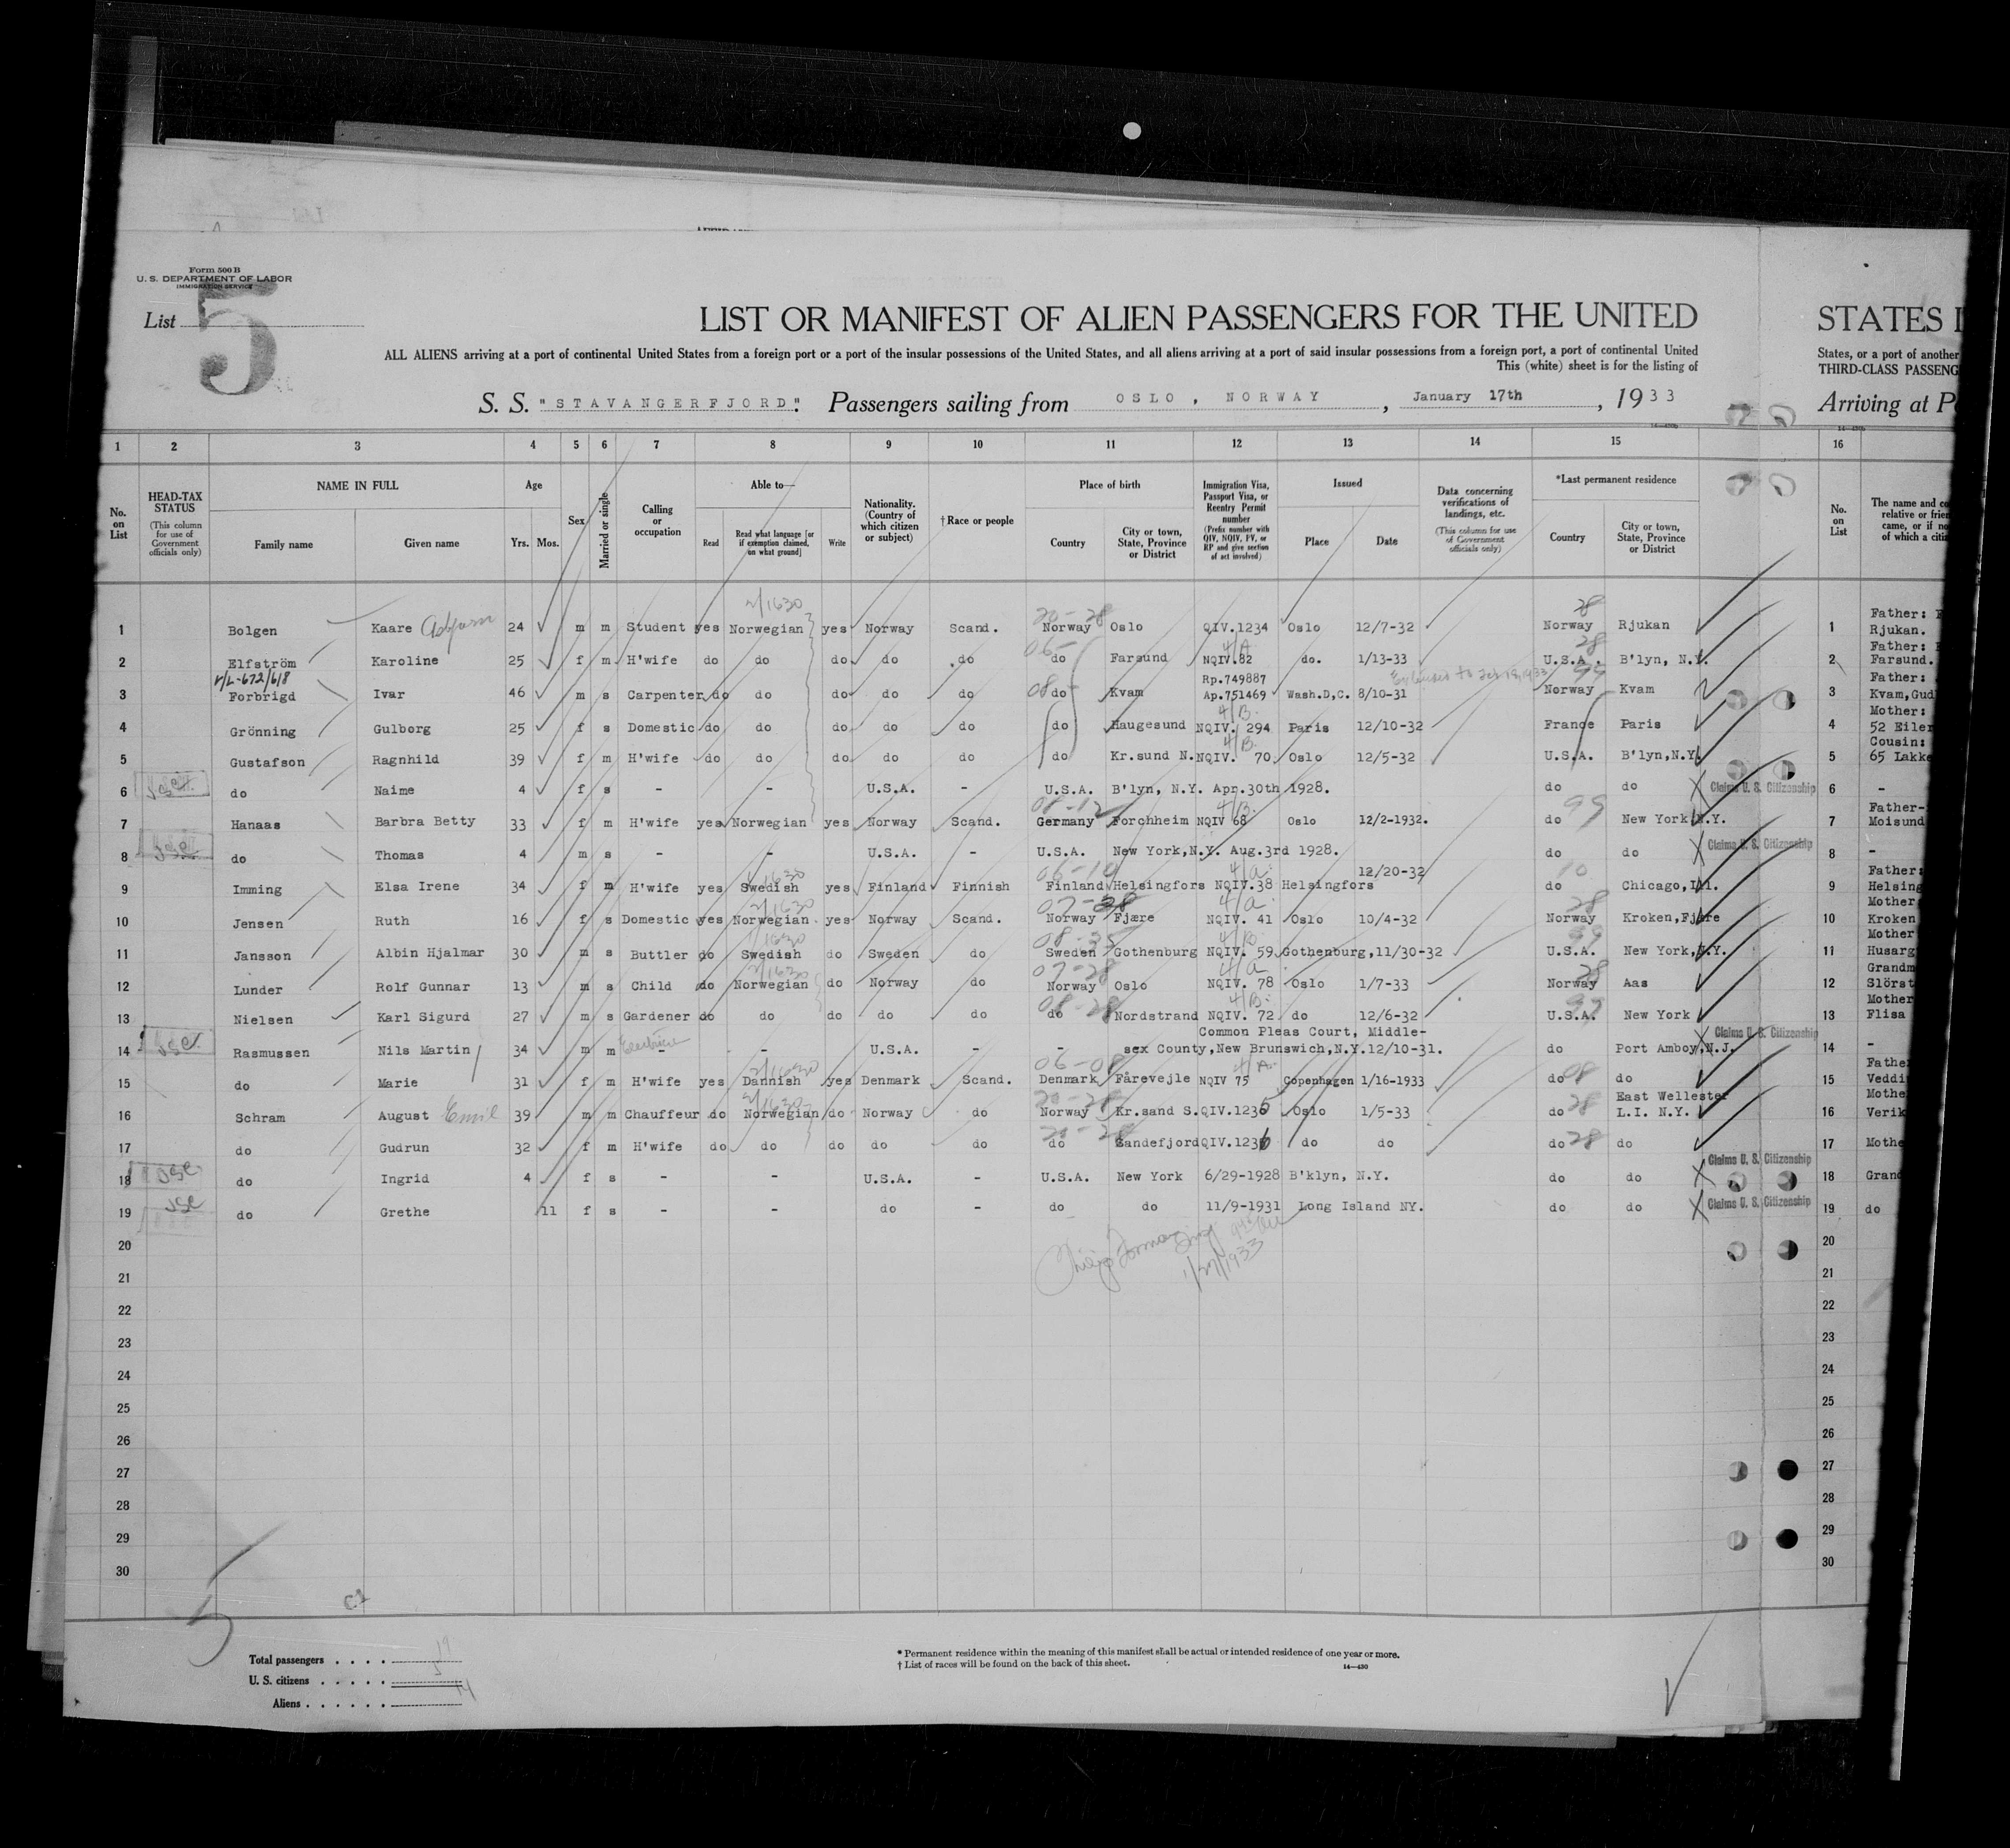 Form 500 B
U. S. DEPARTMENT OF LABOR
IMMIGRATION SERVICE
List 5
LIST OR MANIFEST OF ALIEN PASSENGERS FOR THE UNITED
STATES I
ALL ALIENS arriving at a port of continental United States from a foreign port or a port of the insular possessions of the United States, and all aliens arriving at a port of said insular possessions from a foreign port, a port of continental United
States, or a port of another
This (white) sheet is for the listing of
THIRD-CLASS PASSENG
S. S. "STAVANGERFJORD". Passengers sailing from OSLO, NORWAY, January 17th, 1933
Arriving at P
1 2 3 4 5 6 7 8 9 10 11 12 13 14 15 16
No. on List
HEAD-TAX STATUS (This column for use of Government officials only)
NAME IN FULL Family name Given name
Age Yrs. Mos.
Sex
Married or single
Calling or occupation
Able to— Read Read what language [or if exemption claimed, on what ground] Write
Nationality. (Country of which citizen or subject)
†Race or people
Place of birth Country City or town, State, Province or District
Immigration Visa, Passport Visa, or Reentry Permit number (Prefix number with QIV, NQIV, PV, or RP and give section of act involved)
Issued Place Date
Data concerning verifications of landings, etc. (This column for use of Government officials only)
*Last permanent residence Country City or town, State, Province or District
No. on List
The name and co
relative or frien
came, or if no
of which a citi
1 Bolgen Kaare 24 m m Student yes Norwegian 2/1630 yes Norway Scand. 20-28 Norway Oslo QIV.1234 Oslo 12/7-32 28 Norway Rjukan 1 Father: Rjukan.
2 Elfström Karoline 25 f m H'wife do do do do do 06- do Farsund 4/A NQIV.82 do. 1/13-33 28 U.S.A. B'lyn, N.Y. 2 Father: Farsund.
3 Forbrigd Ivar 46 m s Carpenter do do do do do 08- do Kvam Rp.749887 Ap.751469 Wash.D,C. 8/10-31 99 Norway Kvam 3 Father: Kvam,Gud
4 Grönning Gulborg 25 f s Domestic do do do do do do Haugesund 4/B NQIV. 294 Paris 12/10-32 France Paris 4 Mother: 52 Eiler
5 Gustafson Ragnhild 39 f m H'wife do do do do do do Kr.sund N. 4/B NQIV. 70 Oslo 12/5-32 U.S.A. B'lyn,N.Y. 5 Cousin: 65 Lakke
6 do Naime 4 f s - - U.S.A. - U.S.A. B'lyn, N.Y. Apr.30th 1928. do do X Claims U. S. Citizenship 6 -
7 Hanaas Barbra Betty 33 f m H'wife yes Norwegian yes Norway Scand. Germany Forchheim 4/B NQIV 68 Oslo 12/2-1932. do 99 New York N.Y. 7 Father- Moisund
8 do Thomas 4 m s - - U.S.A. - U.S.A. New York,N.Y. Aug.3rd 1928. do do X Claims U. S. Citizenship 8 -
9 Imming Elsa Irene 34 f m H'wife yes Swedish yes Finland Finnish Finland Helsingfors 4/a NQIV.38 Helsingfors 12/20-32 10 do Chicago,Ill. 9 Father: Helsing
10 Jensen Ruth 16 f s Domestic yes Norwegian yes Norway Scand. 07-28 Norway Fjære 4/a NQIV. 41 Oslo 10/4-32 28 Norway Kroken,Fjære 10 Mother Kroken
11 Jansson Albin Hjalmar 30 m s Buttler do Swedish do Sweden do Sweden Gothenburg 4/B NQIV. 59 Gothenburg,11/30-32 99 U.S.A. New York,N.Y. 11 Mother Husarg
12 Lunder Rolf Gunnar 13 m s Child do Norwegian do Norway do 07-28 Norway Oslo 4/a NQIV. 78 Oslo 1/7-33 28 Norway Aas 12 Grandm Slörst
13 Nielsen Karl Sigurd 27 m s Gardener do do do do do 08-28 do Nordstrand 4/B NQIV. 72 do 12/6-32 99 U.S.A. New York 13 Mother Flisa
14 Rasmussen Nils Martin 34 m m - - U.S.A. - Common Pleas Court, Middle-
sex County,New Brunswich,N.Y.12/10-31. do Port Amboy,N.J. X Claims U. S. Citizenship 14 -
15 do Marie 31 f m H'wife yes Dannish yes Denmark Scand. 06-08 Denmark Fårevejle 4/A NQIV 75 Copenhagen 1/16-1933 do 08 do 15 Father Veddi
16 Schram August Emil 39 m m Chauffeur do Norwegian do Norway do 20-28 Norway Kr.sand S. QIV.1235 Oslo 1/5-33 do 28 East Wellester L.I. N.Y. 16 Mothe Verik
17 do Gudrun 32 f m H'wife do do do do do 20-28 do Sandefjord QIV.1236 do do do 28 do 17 Mothe
18 do Ingrid 4 f s - - U.S.A. - U.S.A. New York 6/29-1928 B'klyn, N.Y. do do X Claims U. S. Citizenship 18 Grand
19 do Grethe 11 f s - - do - do do 11/9-1931 Long Island NY. do do X Claims U. S. Citizenship 19 do
1/27/1933
20 20
21 21
22 22
23 23
24 24
25 25
26 26
27 27
28 28
29 29
30 30
5
Total passengers 19
U. S. citizens 5
Aliens 14
* Permanent residence within the meaning of this manifest shall be actual or intended residence of one year or more.
† List of races will be found on the back of this sheet.
14—430